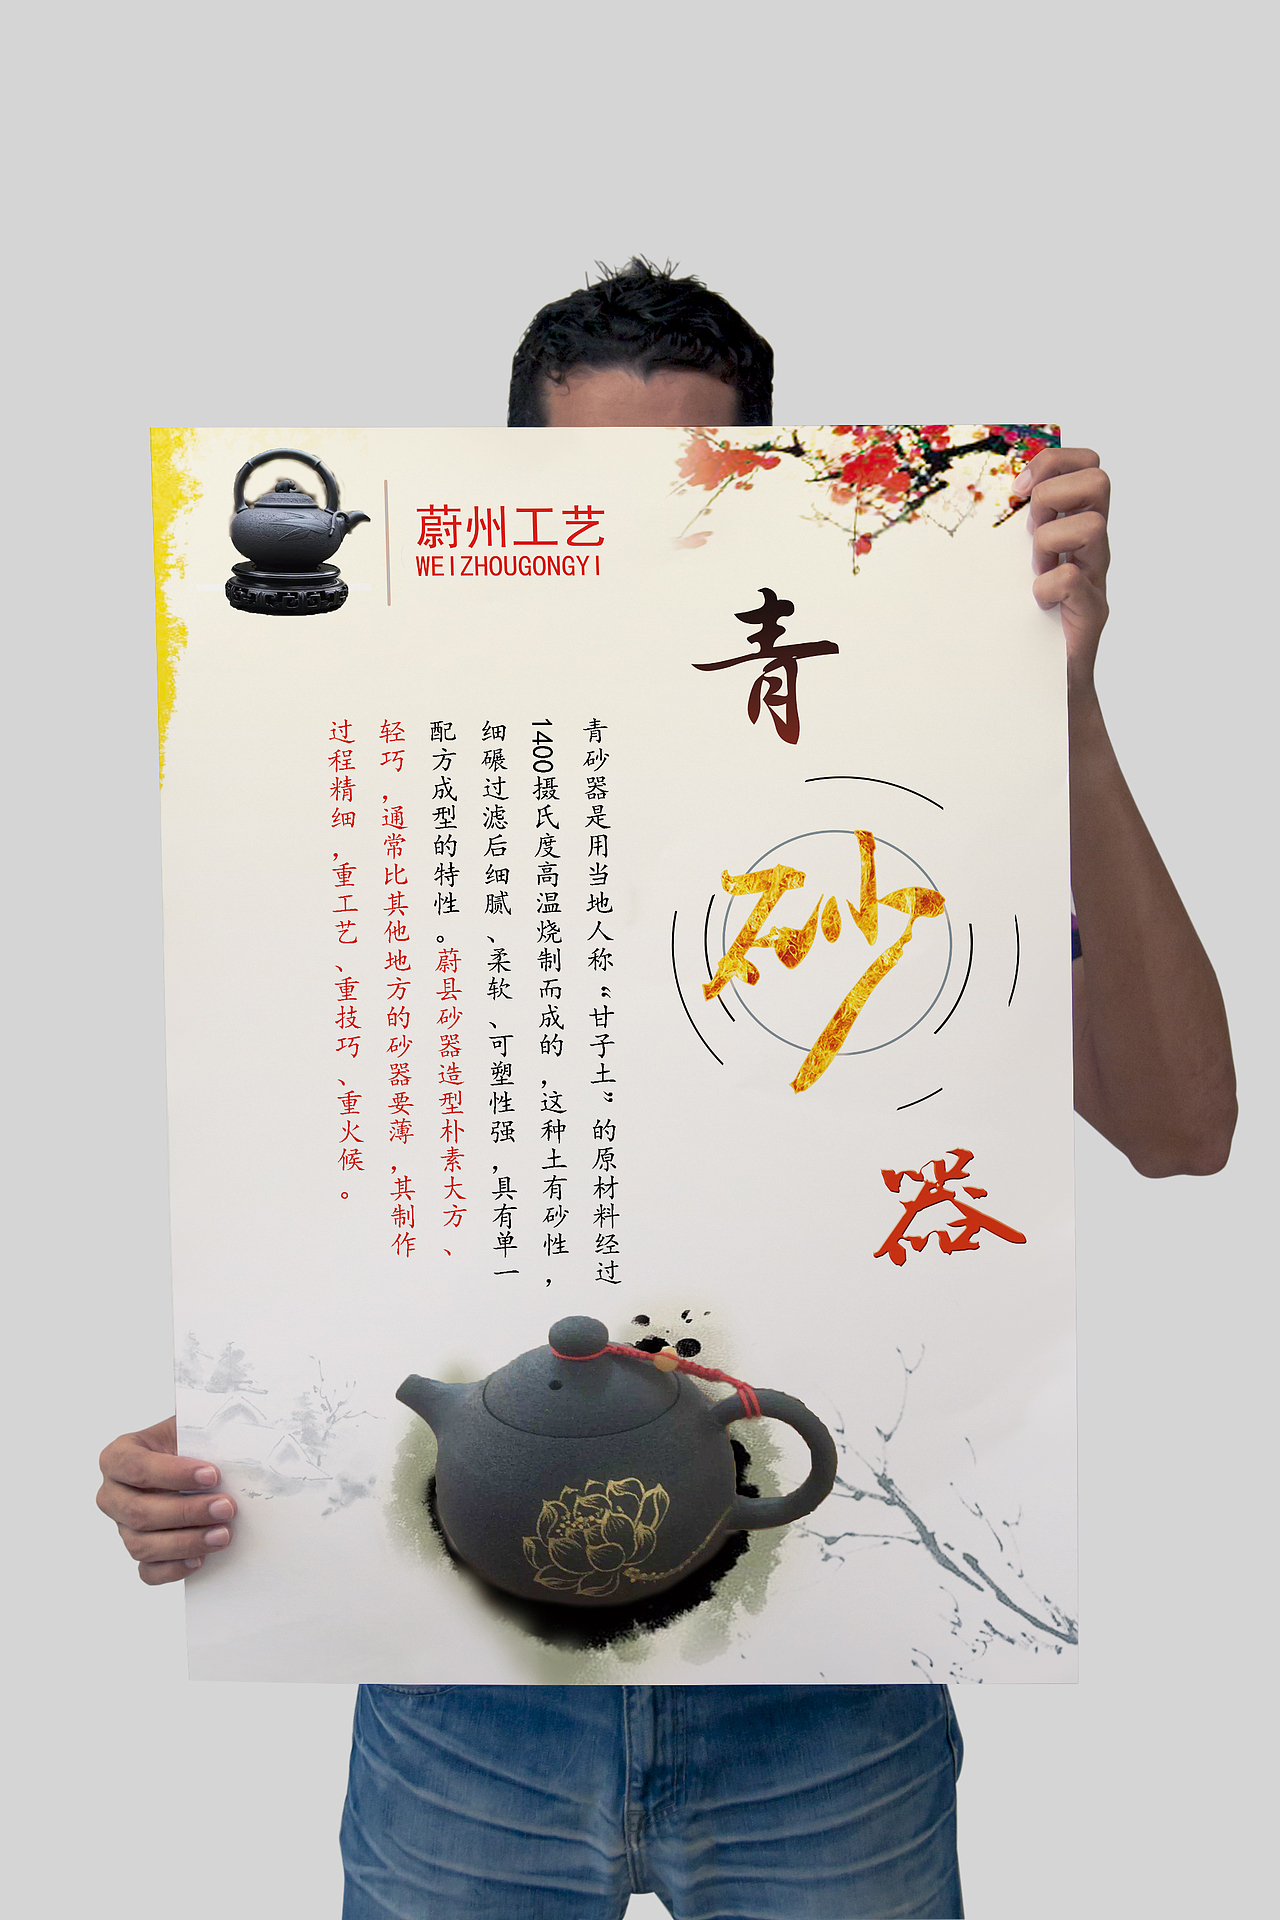 蔚州工艺
WEIZHOUGONGYI
青
砂
器
青砂器是用当地人称“甘子土”的原材料经过
1400摄氏度高温烧制而成的，这种土有砂性，
细碾过滤后细腻、柔软、可塑性强，具有单一
配方成型的特性。蔚县砂器造型朴素大方、
轻巧，通常比其他地方的砂器要薄，其制作
过程精细，重工艺、重技巧、重火候。